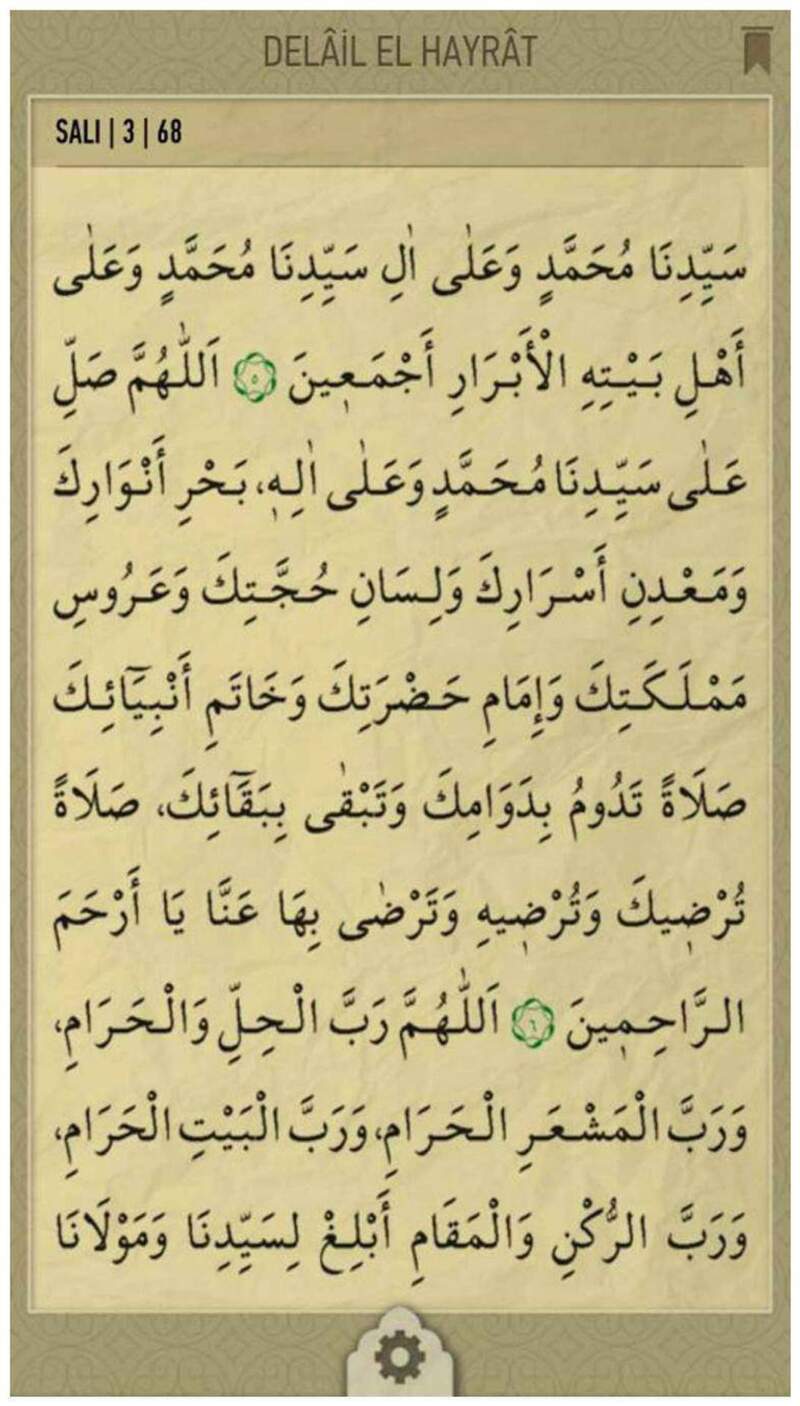 DELÂİL EL HAYRÂT
SALI | 3 | 68
سَيِّدِنَا مُحَمَّدٍ وَعَلٰى اٰلِ سَيِّدِنَا مُحَمَّدٍ وَعَلٰى
أَهْلِ بَيْتِهِ الْأَبْرَارِ أَجْمَعٖينَ ٥ اَللّٰهُمَّ صَلِّ
عَلٰى سَيِّدِنَا مُحَمَّدٍ وَعَلٰى اٰلِهٖ، بَحْرِ أَنْوَارِكَ
وَمَعْدِنِ أَسْرَارِكَ وَلِسَانِ حُجَّتِكَ وَعَرُوسِ
مَمْلَكَتِكَ وَإِمَامِ حَضْرَتِكَ وَخَاتَمِ أَنْبِيَٓائِكَ
صَلَاةً تَدُومُ بِدَوَامِكَ وَتَبْقٰى بِبَقَٓائِكَ، صَلَاةً
تُرْضٖيكَ وَتُرْضٖيهِ وَتَرْضٰى بِهَا عَنَّا يَا أَرْحَمَ
الرَّاحِمٖينَ ٦ اَللّٰهُمَّ رَبَّ الْحِلِّ وَالْحَرَامِ،
وَرَبَّ الْمَشْعَرِ الْحَرَامِ، وَرَبَّ الْبَيْتِ الْحَرَامِ،
وَرَبَّ الرُّكْنِ وَالْمَقَامِ أَبْلِغْ لِسَيِّدِنَا وَمَوْلَانَا